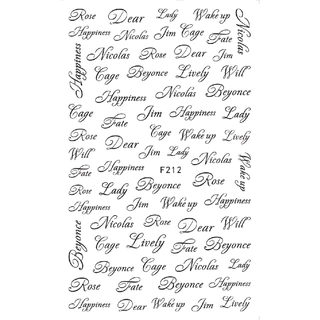 Rose Dear Lady Wake up Nicolas
Happiness Nicolas Jim Cage Fate
Happiness Nicolas Rose Dear Jim
Cage Beyonce Lively Will
Happiness Nicolas Beyonce
Cage Jim Happiness Lady
Fate Cage Wake up Lively
Rose Dear Jim Lady
Will Nicolas Wake up
Fate Happiness F212 Rose
Rose Lady Beyonce
Happiness Jim Wake up Happiness
Beyonce Nicolas Rose Dear Will
Cage Lively Fate Beyonce
Beyonce Cage Nicolas Lady
Rose Fate Beyonce Rose
Happiness Dear Wake up Jim Lively